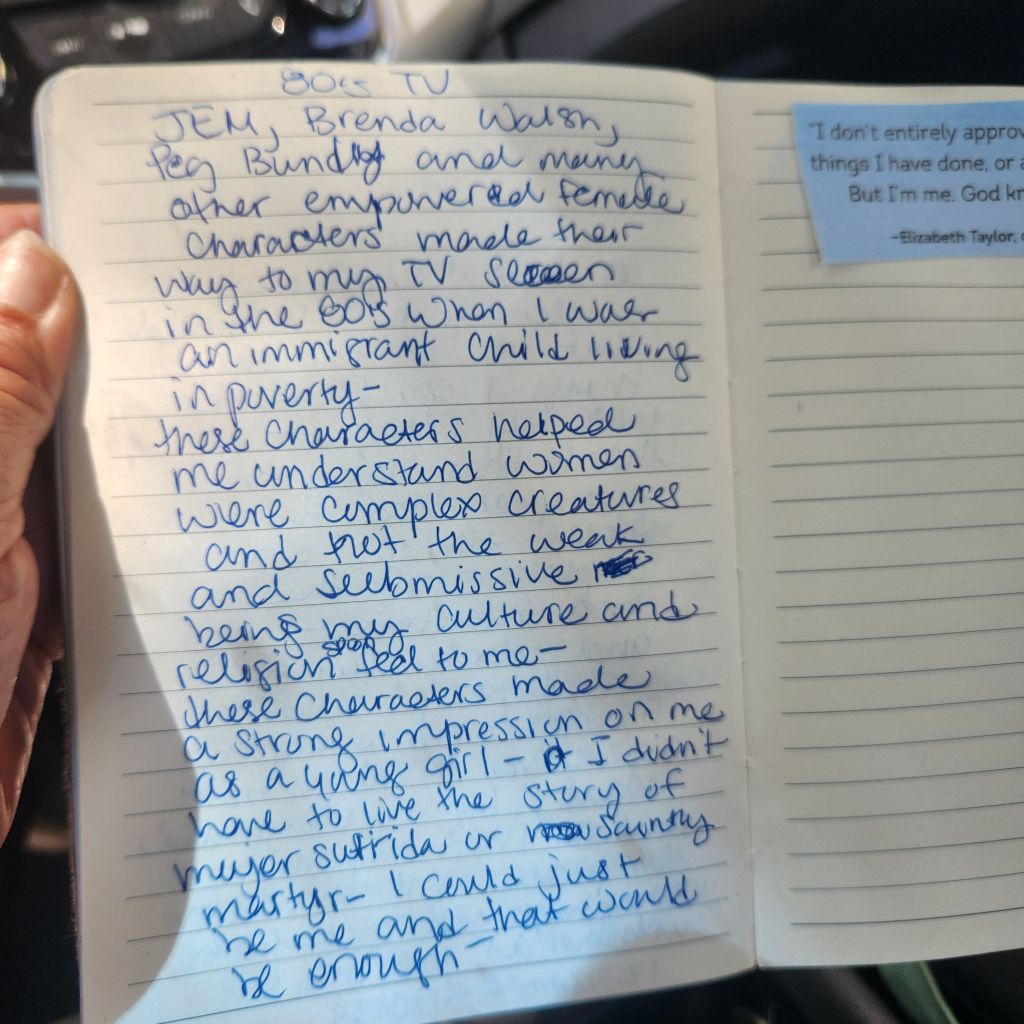 80's TV
JEM, Brenda Walsh,
Peg Bundy and many
other empowered female
characters made their
way to my TV screen
in the 80's when I was
an immigrant child living
in poverty-
these characters helped
me understand women
were complex creatures
and not the weak
and submissive
being my culture and
religion spoon fed to me-
these characters made
a strong impression on me
as a young girl - I didn't
have to live the story of
mujer sufrida or saintly
martyr- I could just
be me and that would
be enough-
"I don't entirely approv
things I have done, or a
But I'm me. God kn
-Elizabeth Taylor,